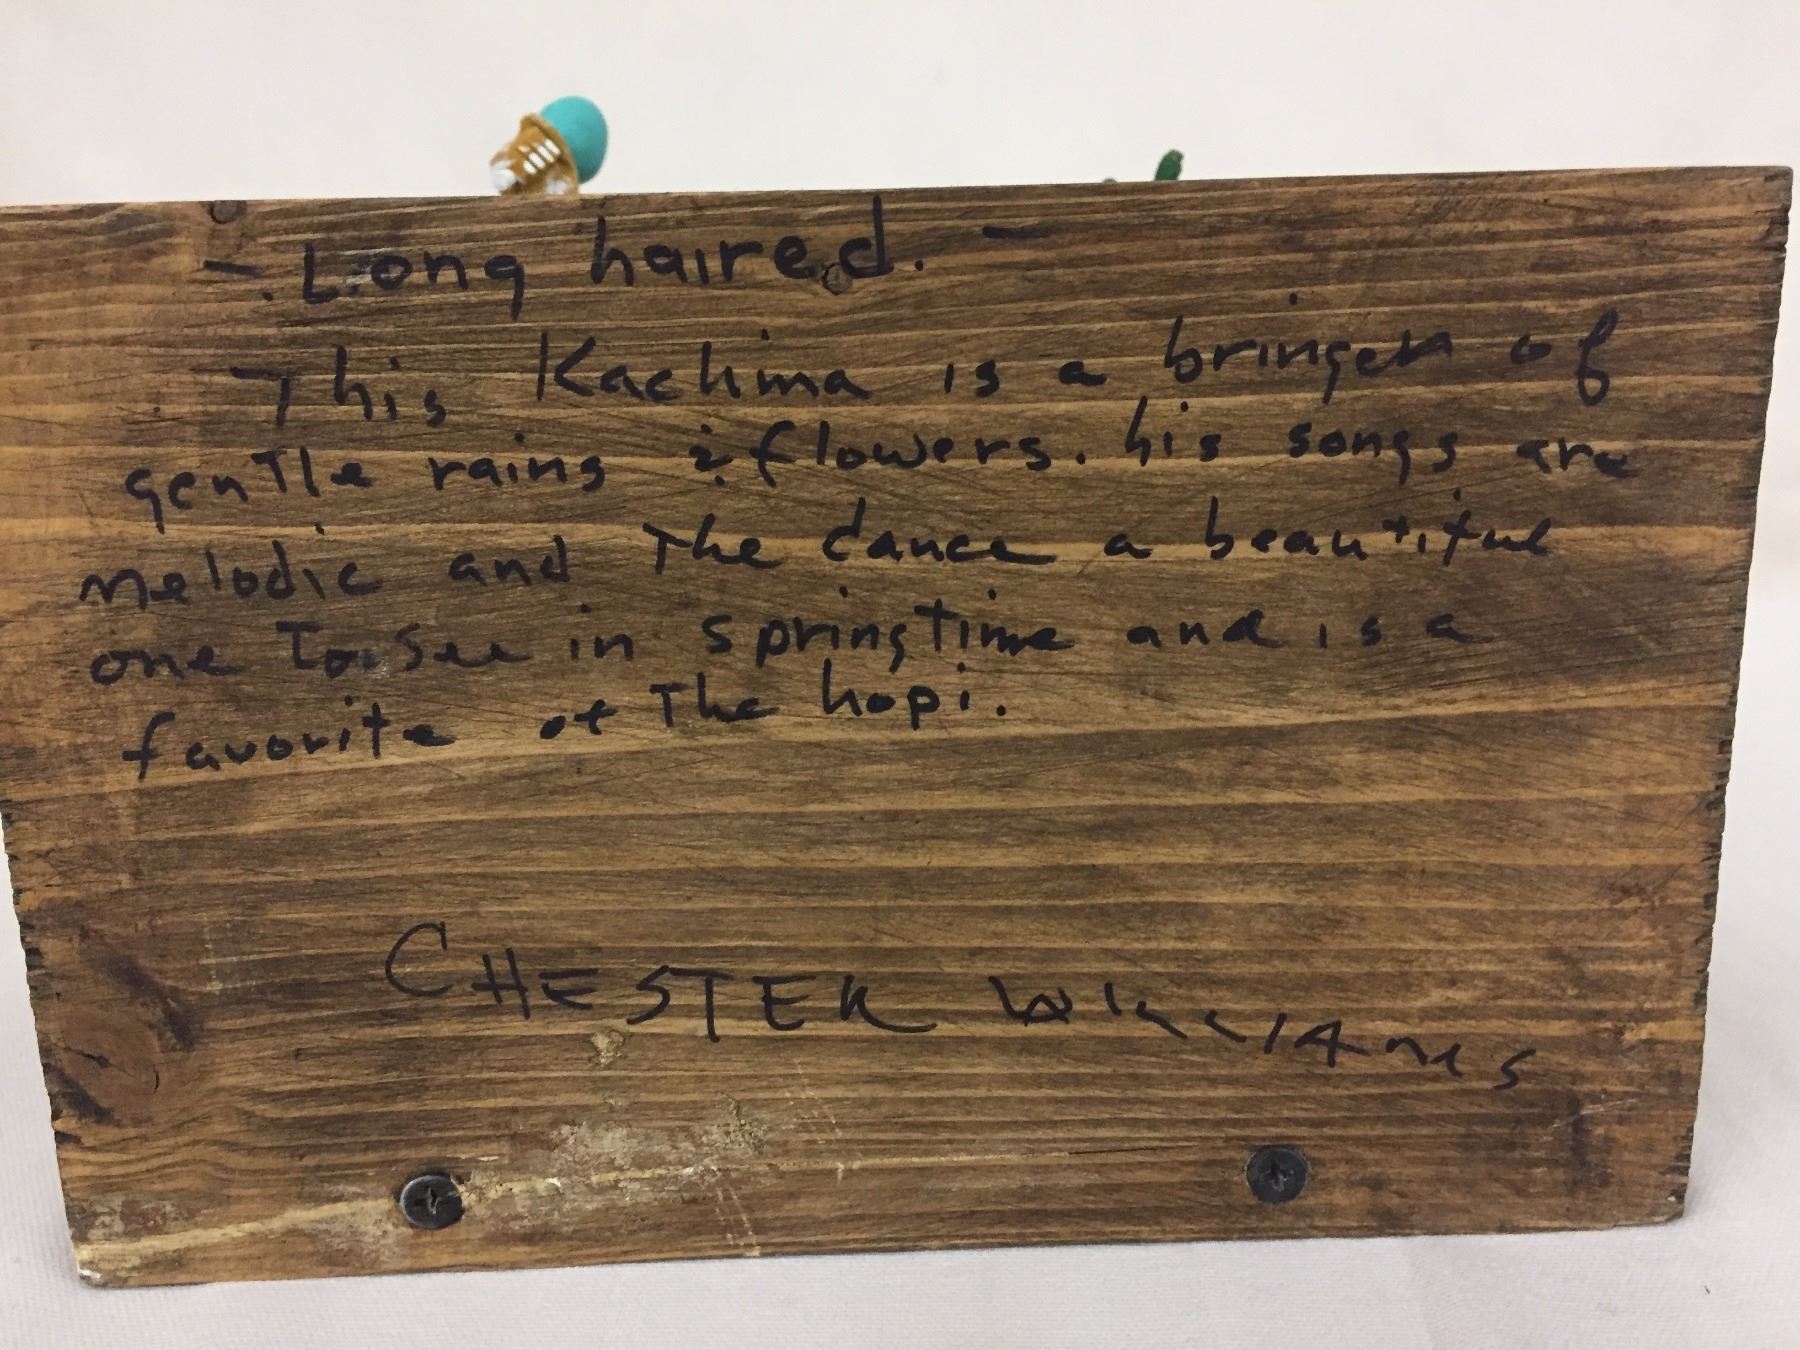 - Long haired. -
This Kachina is a bringer of
gentle rains & flowers. his songs are
melodic and The dance a beautiful
one To see in springtime and is a
favorite of The hopi.
CHESTER WILLIAMS